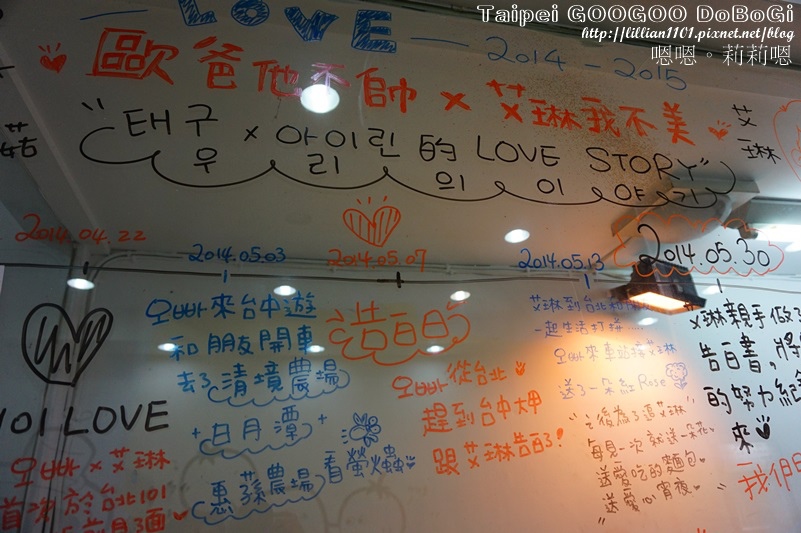 Taipei GOOGOO DoBoGi
http://lillian1101.pixnet.net/blog
嗯嗯。莉莉嗯
LOVE
2014-2015
歐爸他不帥 × 艾琳我不美
艾琳
태구 × 아이린 的 LOVE STORY"
우리의 이야기
2014.04.22
2014.05.03
2014.05.07
2014.05.13
2014.05.30
101 LOVE
오빠 × 艾琳
首次於台北101
오빠來台中遊
和朋友開車
去了清境農場
+ 日月潭 +
惠蓀農場 看螢火蟲
告白日
오빠 從台北
趕到台中大甲
跟艾琳告白了!
艾琳到台北和
一起生活打拚......
오빠來車站接艾琳
送了一朵紅Rose
後為了還艾琳
每見一次就送一朵花
送愛吃的麵包
送愛心宵夜
艾琳親手做了
告白書,將
的努力給
來
我們